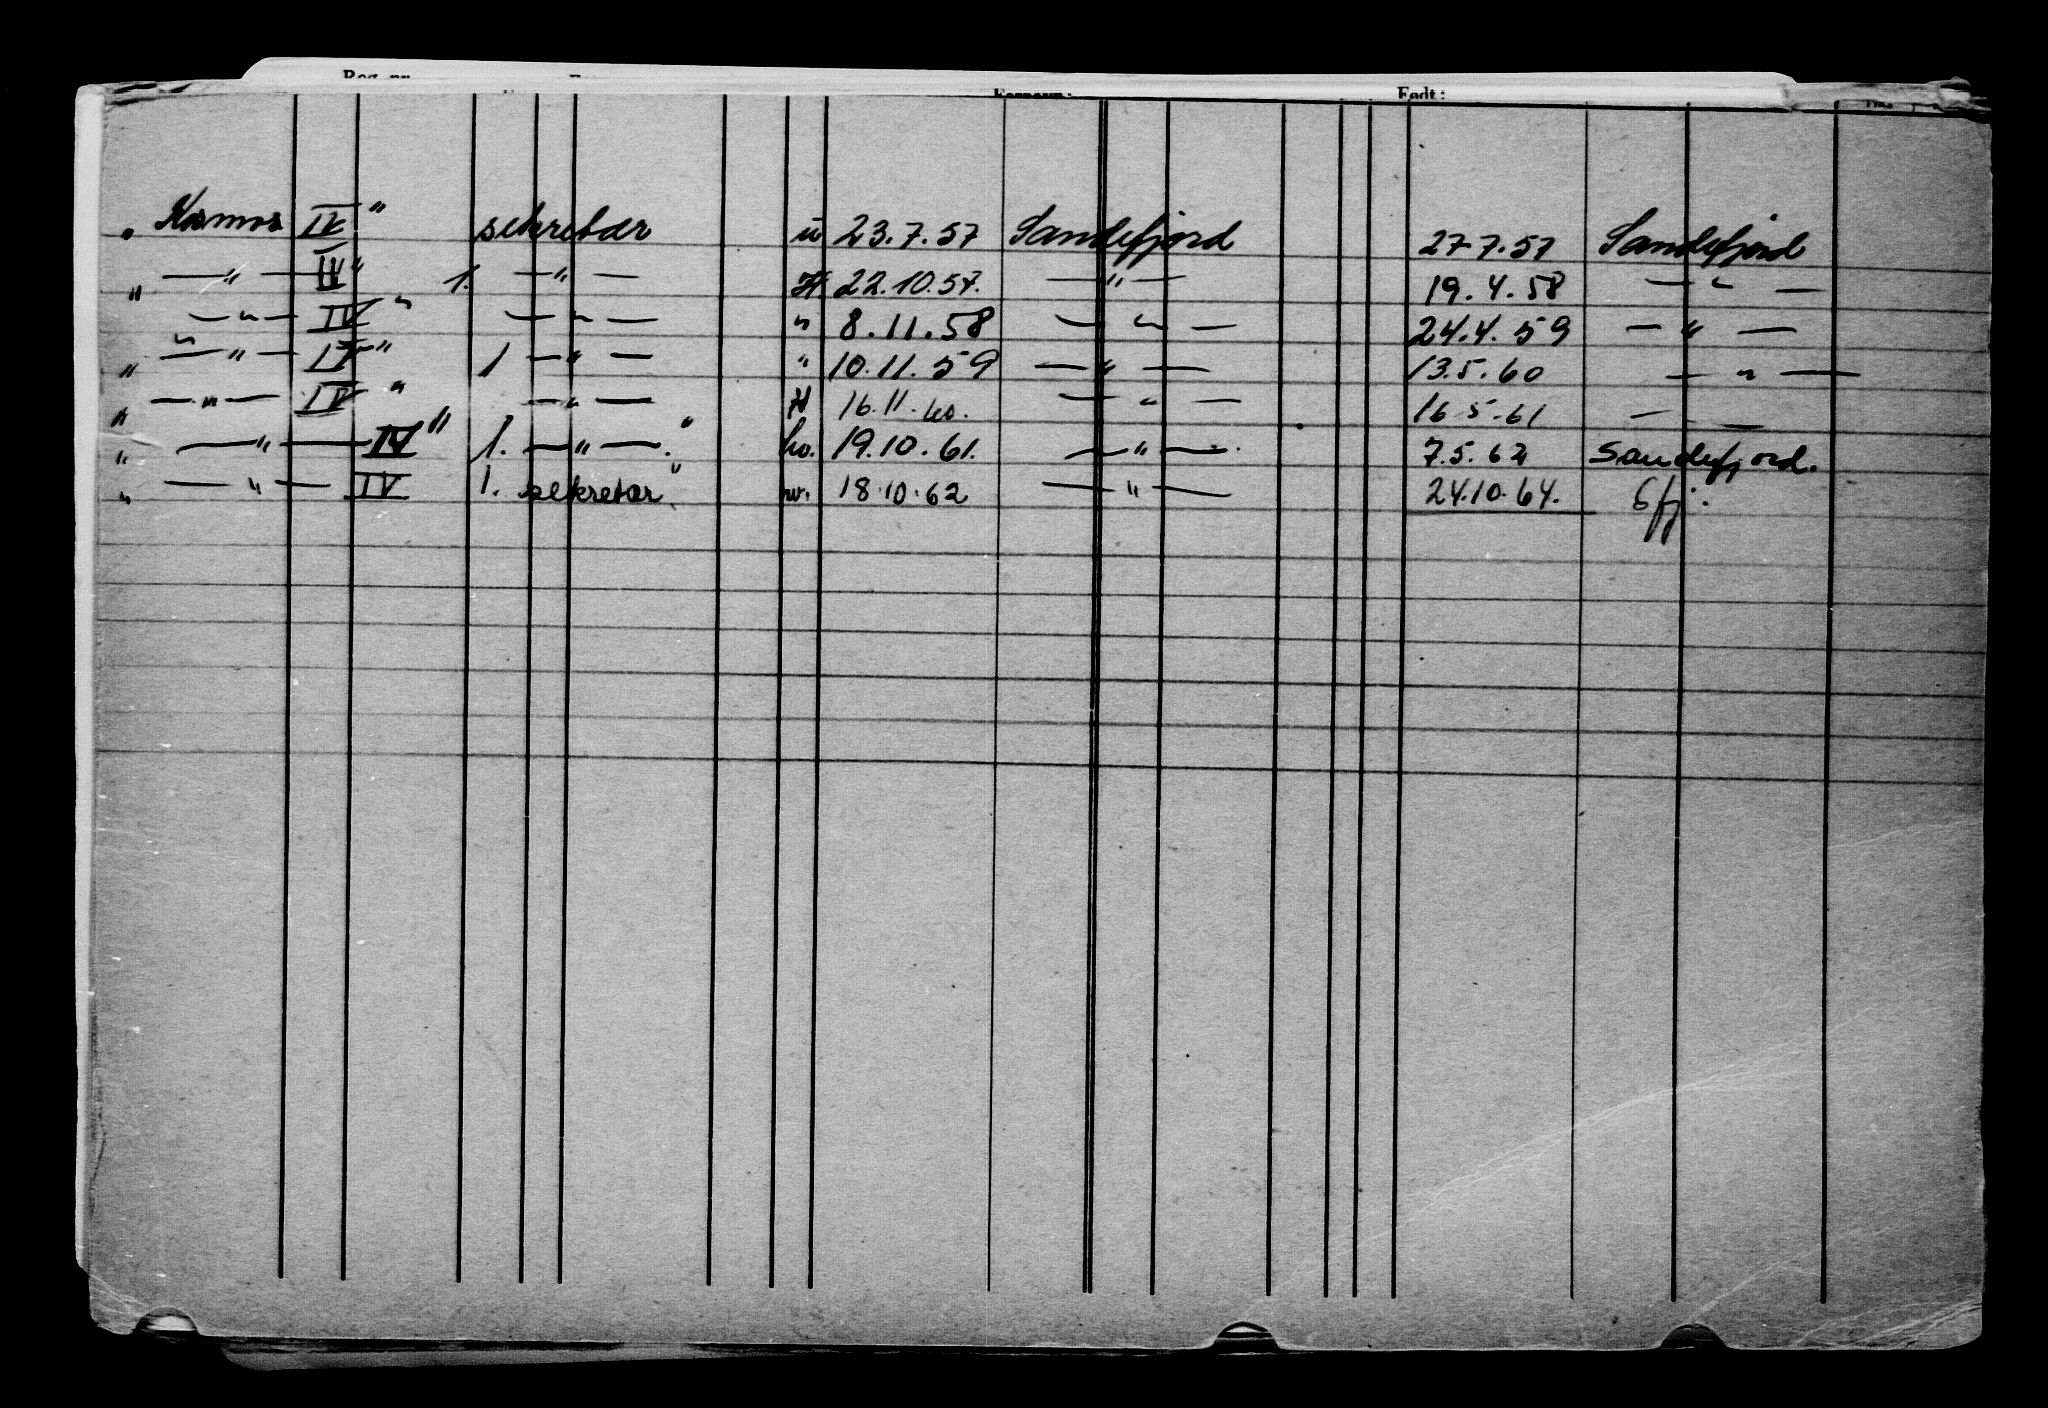 Født:
" Kosmos IV " sekretær u 23.7.57 Sandefjord 27.7.57 Sandefjord
" —"— IV " 1. —"— H 22.10.57. —"— 19.4.58 —"—
—"— IV " —"— " 8.11.58 —"— 24.4.59 —"—
" —"— IV " 1 —"— " 10.11.59 —"— 13.5.60 —"—
" —"— IV " —"— H 16.11.60. —"— 16.5.61 — —
" —"— IV " 1. —"—." hv. 19.10.61. —"—. 7.5.62 Sandefjord.
" —"— IV 1. sekretær " hv. 18.10.62 —"— 24.10.64. Sfj.